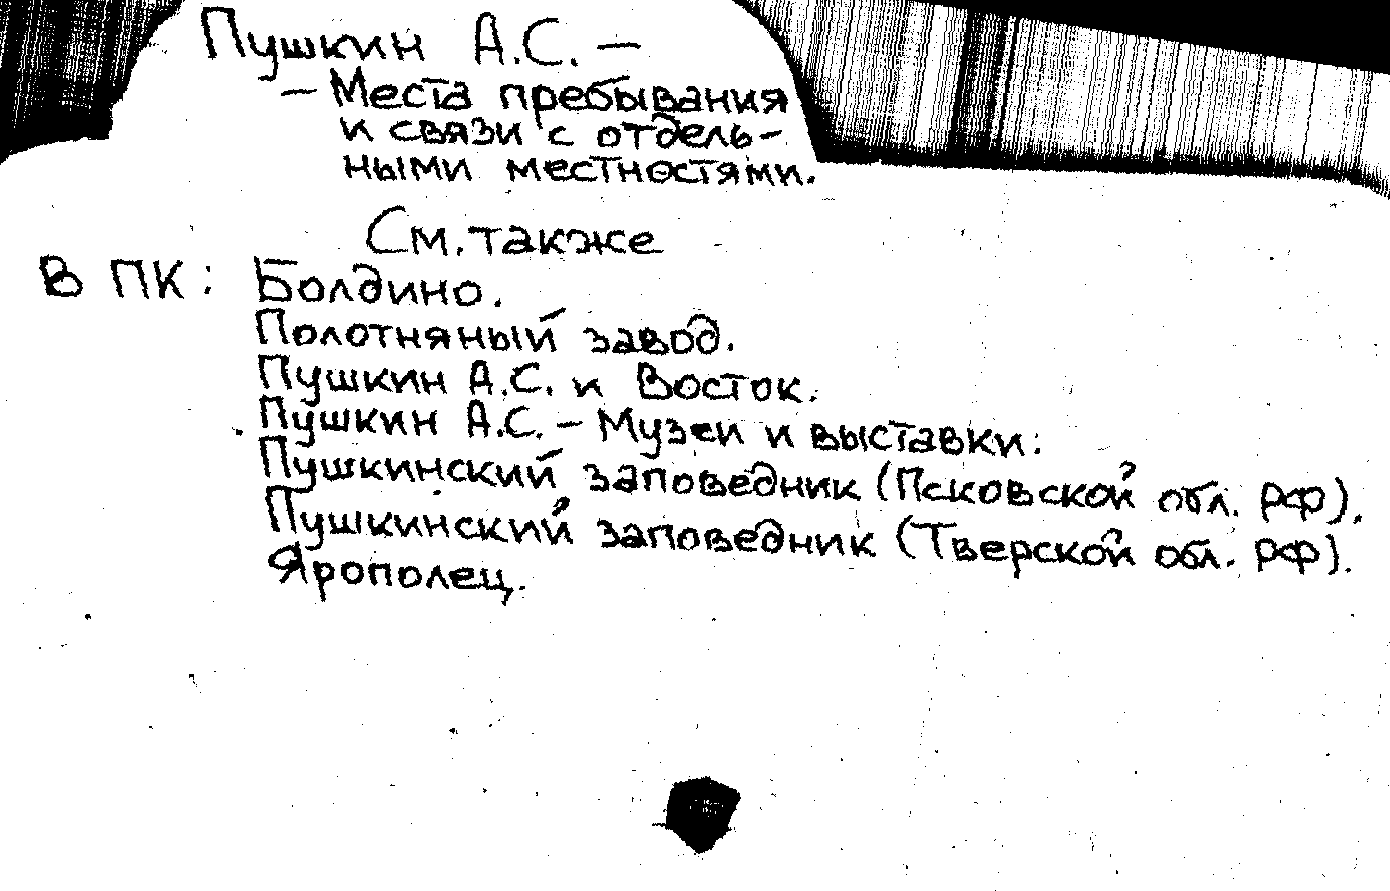 Пушкин А.С. —
— Места пребывания
и связи с отдель-
ными местностями.
См. также
В ПК: Болдино.
Полотняный завод.
Пушкин А.С. и Восток.
Пушкин А.С. – Музеи и выставки.
Пушкинский заповедник (Псковской обл. РФ).
Пушкинский заповедник (Тверской обл. РФ).
Ярополец.